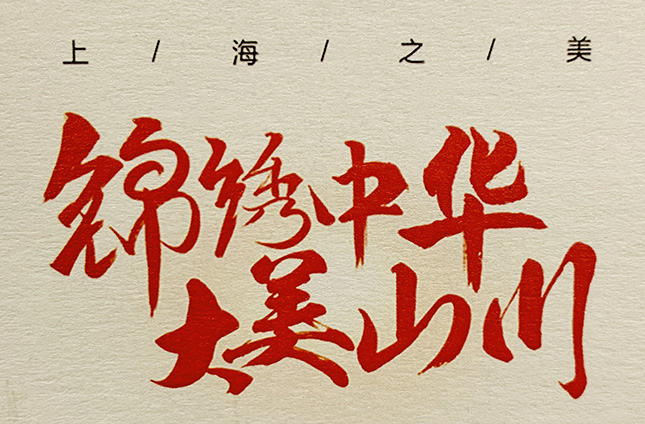 上/海/之/美
锦绣中华
大美山川